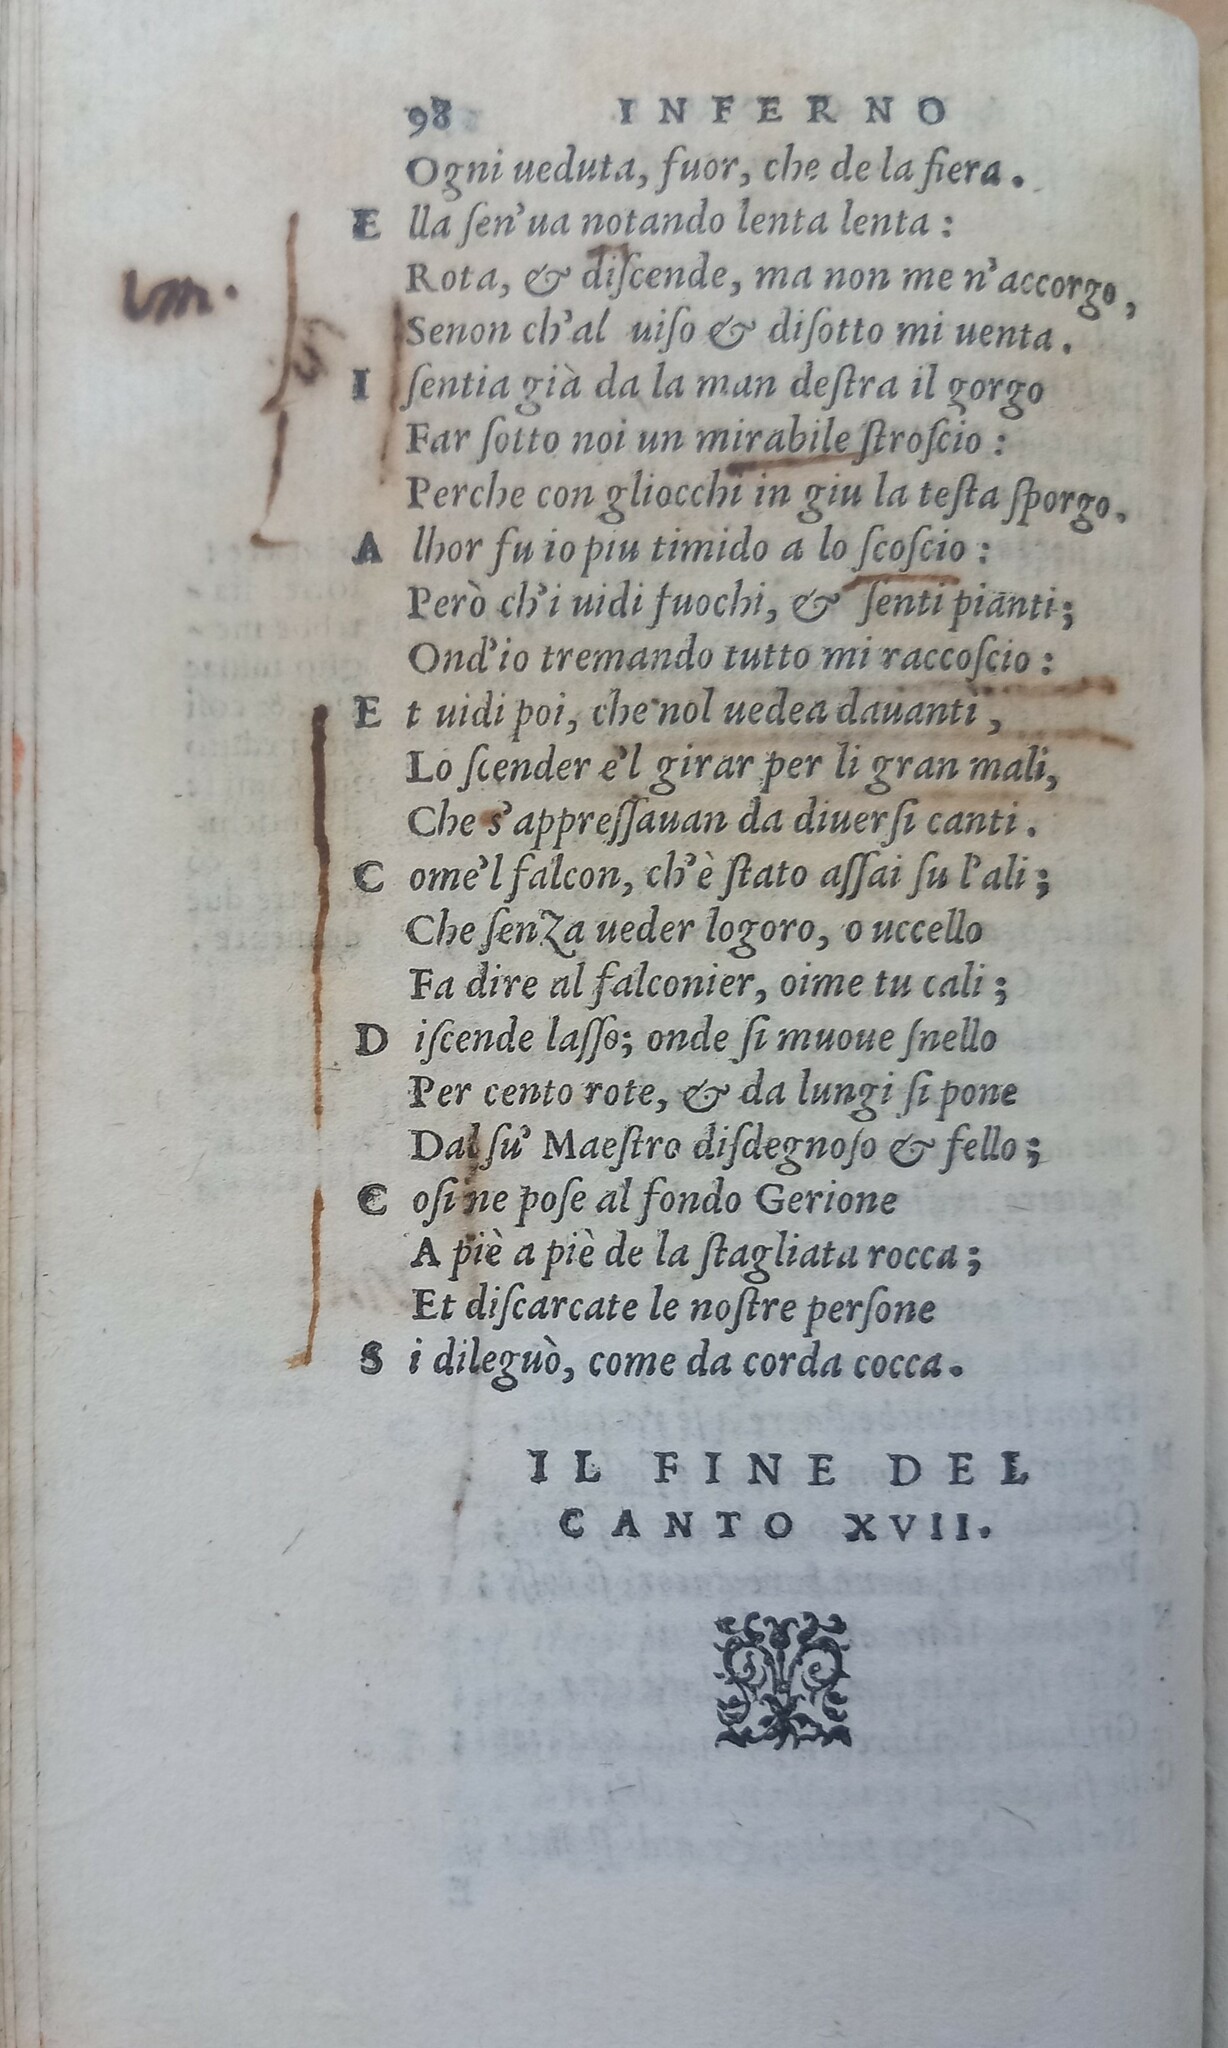 98 INFERNO
Ogni ueduta, fuor, che de la fiera.
E lla ſen'ua notando lenta lenta:
Rota, & diſcende, ma non me n'accorgo,
Senon ch'al uiſo & diſotto mi uenta.
I ſentia già da la man deſtra il gorgo
Far ſotto noi un mirabile ſtroſcio:
Perche con gliocchi in giu la teſta ſporgo.
A lhor fu io piu timido a lo ſcoſcio:
Però ch'i uidi fuochi, & ſenti pianti;
Ond'io tremando tutto mi raccoſcio:
E t uidi poi, che nol uedea dauanti,
Lo ſcender e'l girar per li gran mali,
Che s'appreſſauan da diuerſi canti.
C ome'l falcon, ch'è ſtato aſſai ſu l'ali;
Che ſenza ueder logoro, o uccello
Fa dire al falconier, oime tu cali;
D iſcende laſſo; onde ſi muoue ſnello
Per cento rote, & da lungi ſi pone
Dal ſu' Maeſtro diſdegnoſo & fello;
C oſi ne poſe al fondo Gerione
A piè a piè de la ſtagliata rocca;
Et diſcarcate le noſtre perſone
S i dileguò, come da corda cocca.
IL FINE DEL
CANTO XVII.